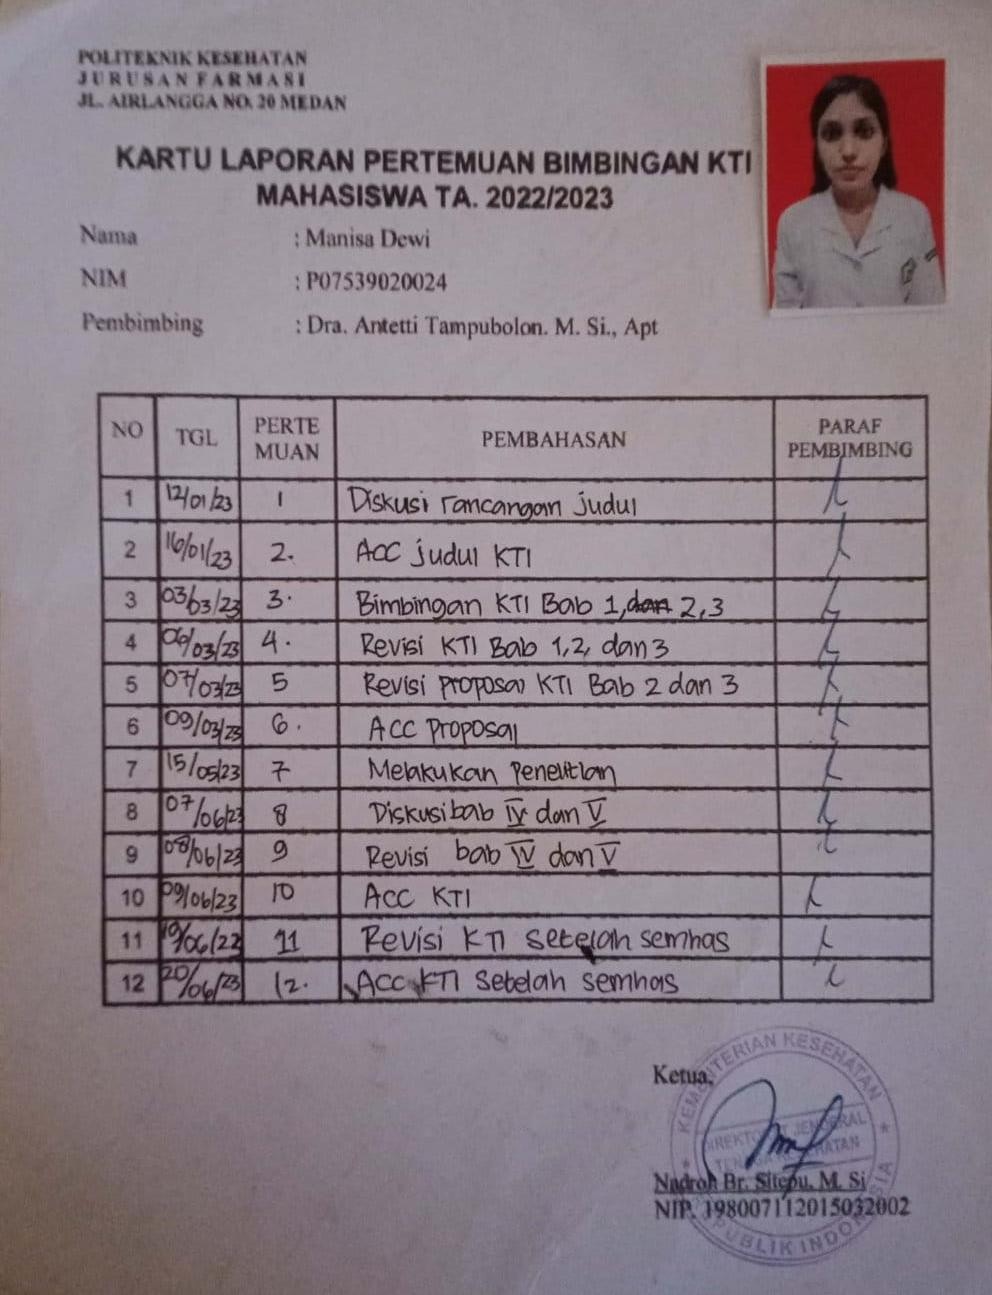 POLITEKNIK KESEHATAN
JURUSAN FARMASI
JL. AIRLANGGA NO. 20 MEDAN
KARTU LAPORAN PERTEMUAN BIMBINGAN KTI
MAHASISWA TA. 2022/2023
Nama : Manisa Dewi
NIM : P07539020024
Pembimbing : Dra. Antetti Tampubolon. M. Si., Apt
NO TGL PERTE MUAN PEMBAHASAN PARAF PEMBIMBING
1 12/01/23 1 Diskusi rancangan judul
2 16/01/23 2. ACC judul KTI
3 03/03/23 3. Bimbingan KTI Bab 1, dan 2,3
4 06/03/23 4. Revisi KTI Bab 1,2, dan 3
5 07/03/23 5 Revisi proposal KTI Bab 2 dan 3
6 09/03/23 6. ACC Proposal
7 15/05/23 7 Melakukan Penelitian
8 07/06/23 8 Diskusi bab IV dan V
9 08/06/23 9 Revisi bab IV dan V
10 09/06/23 10 ACC KTI
11 19/06/23 11 Revisi KTI setelah semhas
12 20/06/23 12. ACC KTI setelah semhas
Ketua,
KEMENTERIAN KESEHATAN
DIREKTORAT JENDERAL
TENAGA KESEHATAN
REPUBLIK INDONESIA
Nadroh Br. Sitepu, M. Si
NIP. 198007112015032002